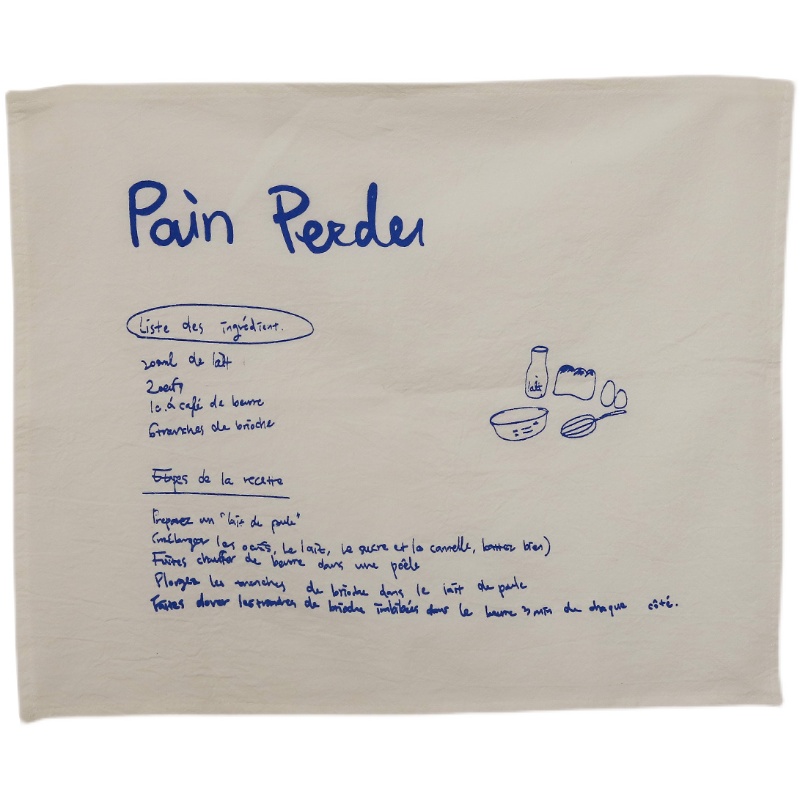 Pain Perdu
Liste des ingrédient.
20ml de lait
2oeufs
1c.à café de beurre
6tranches de brioche
lait
Etapes de la recette
Preparez un "lait de poule"
(mélanger les oeufs, le lait, le sucre et la cannelle, battez bien)
Faites chauffer de beurre dans une poêle
Plongez les tranches de brioche dans le lait de poule
Faites dorer les tranches de brioche imbibées dans le beurre 3 min de chaque côté.